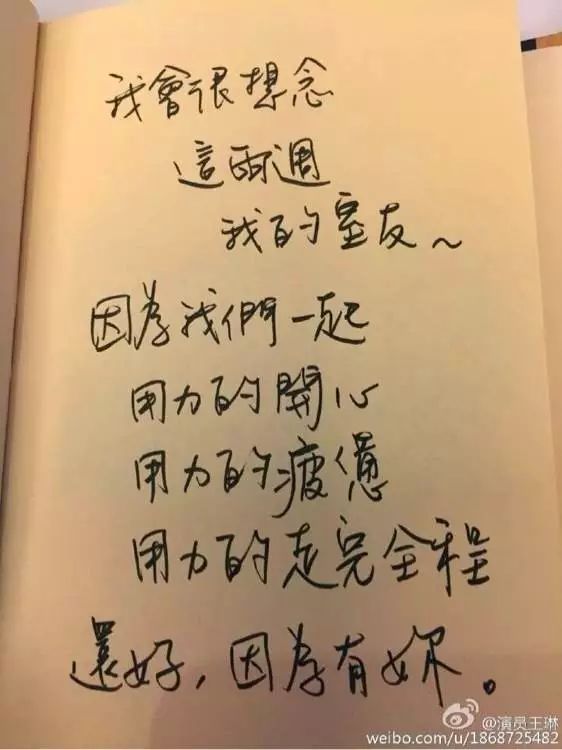 我會很想念
這兩週
我的室友~
因為我們一起
用力的開心
用力的疲憊
用力的走完全程
還好，因為有妳。
@演员王琳
weibo.com/u/1868725482